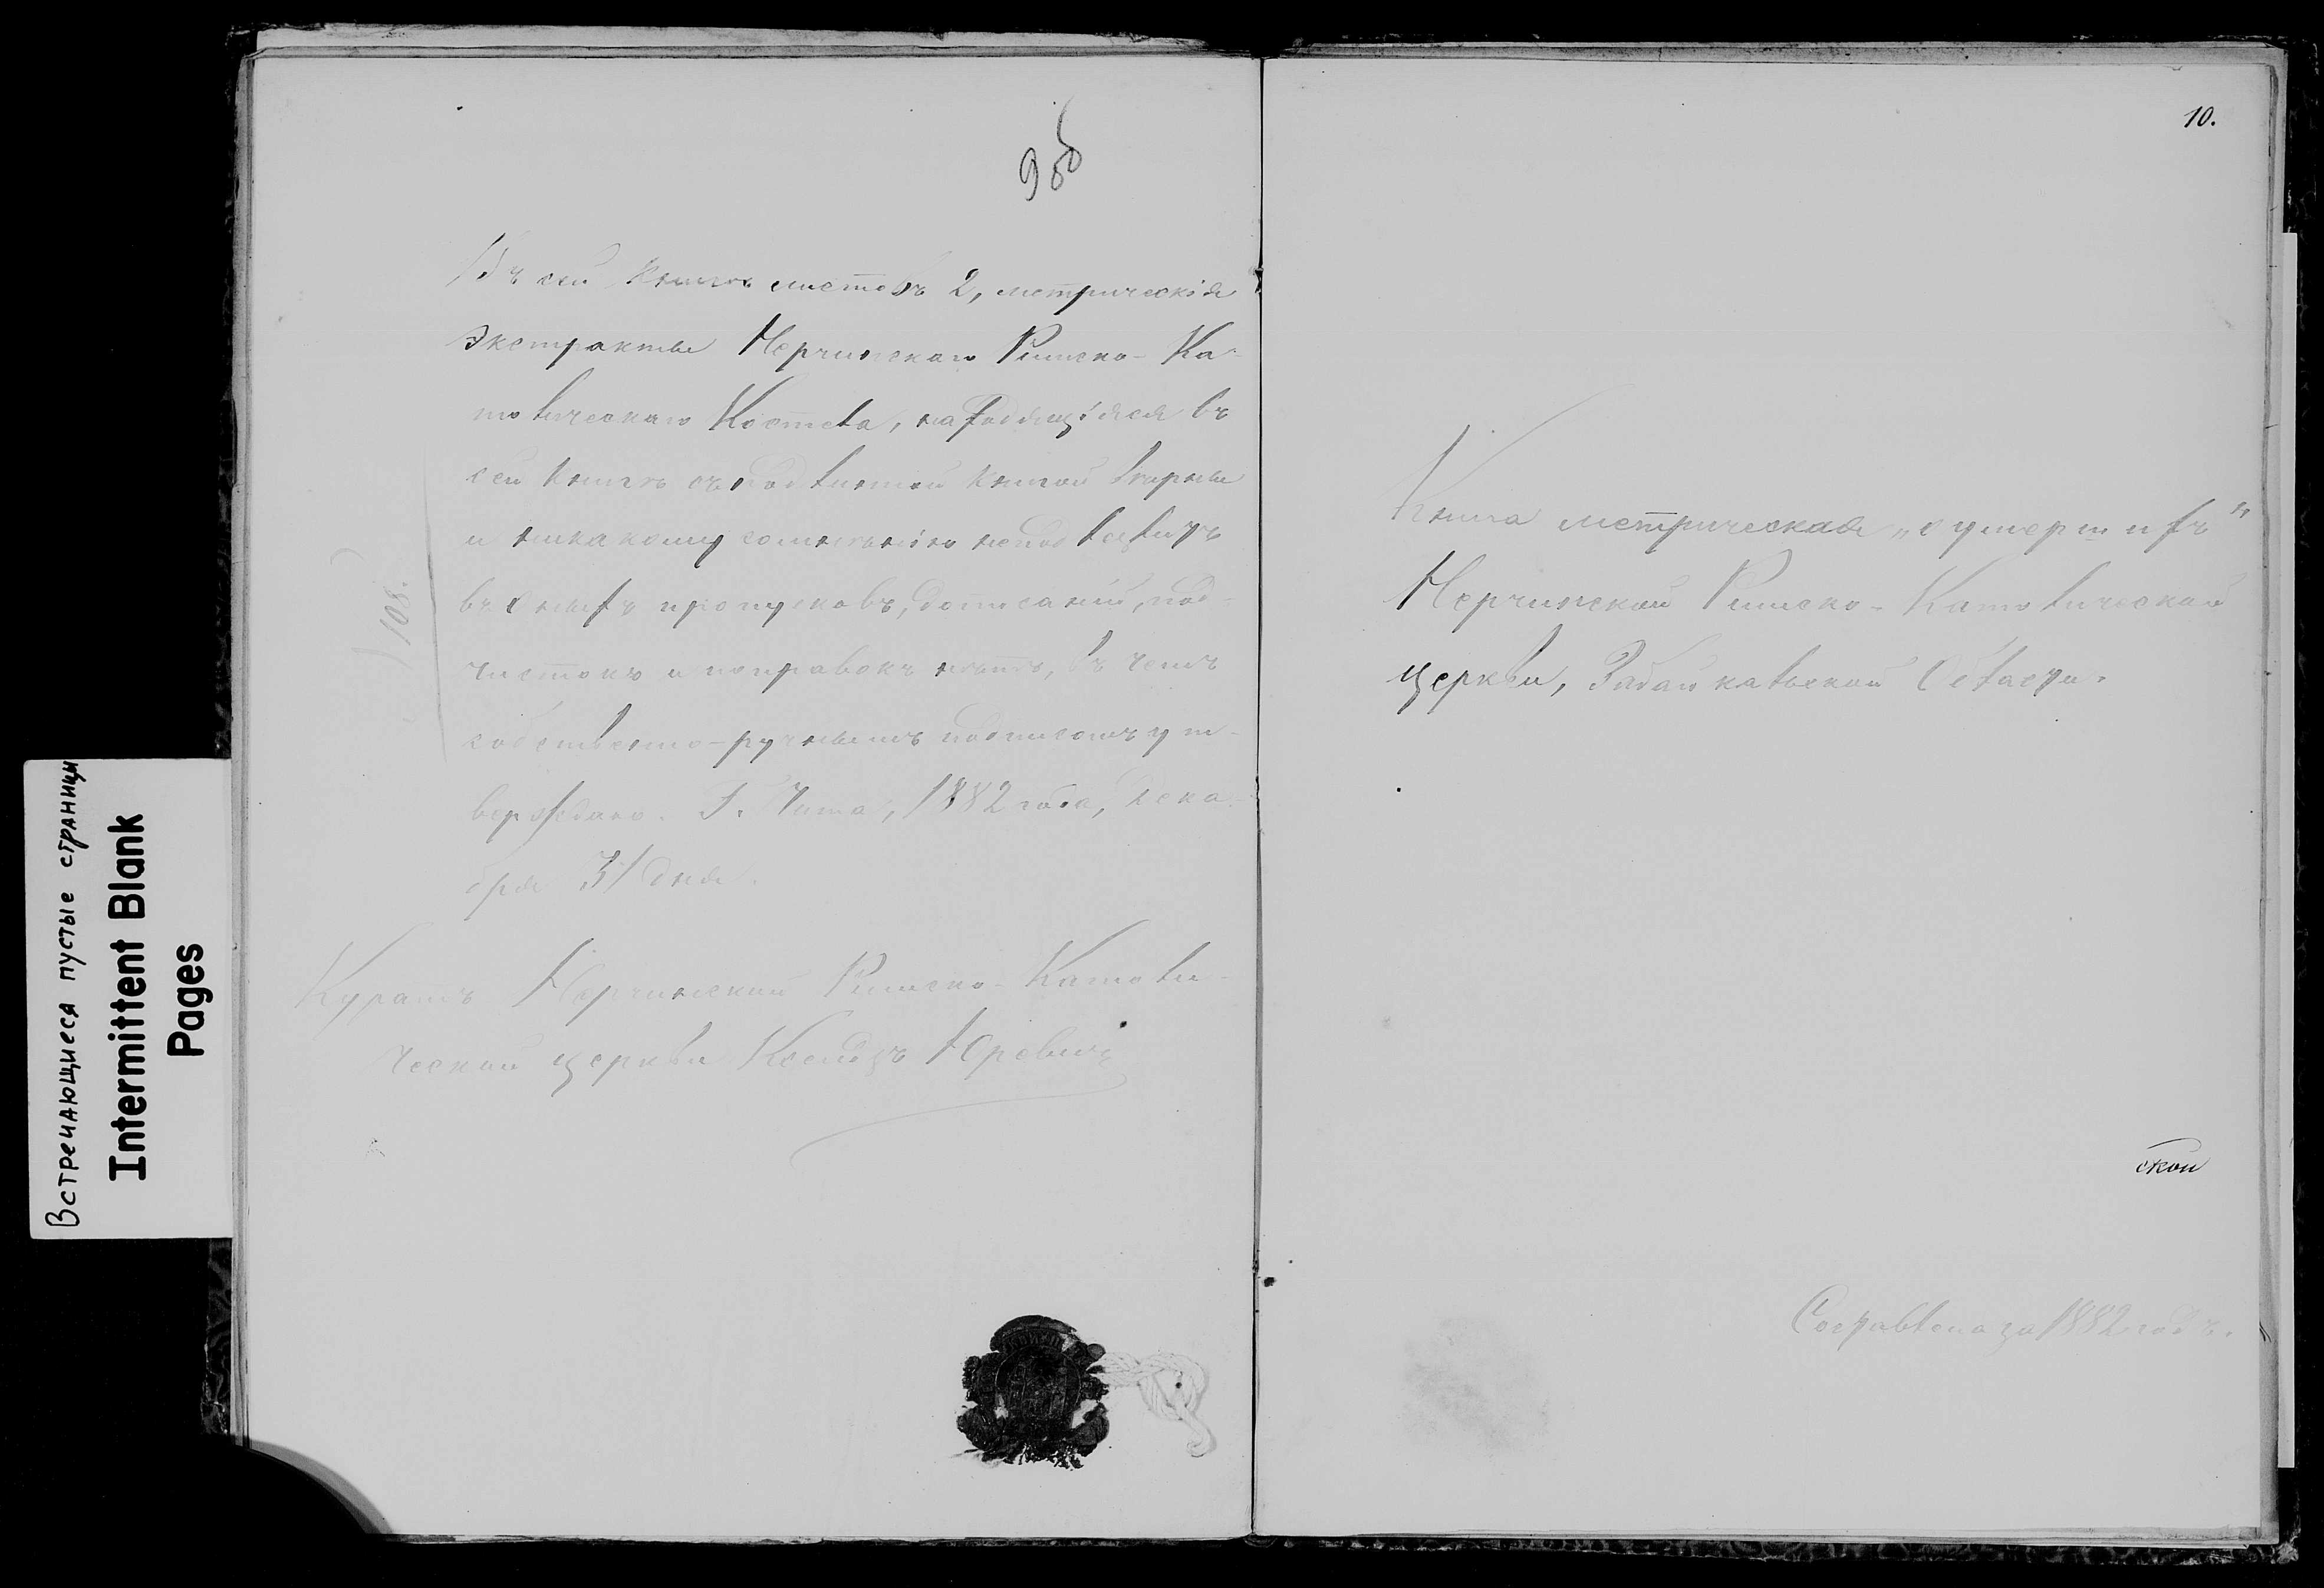 Встречающиеся пустые страницы
Intermittent Blank
Pages
9 об
Въ сей книгѣ листовъ 2, метрическія
экстракты Нерчинскаго Римско-Ка-
толическаго Костела, находящіяся въ
сей книгѣ съ подлинной книгой вѣрны
и никакому сомнѣнію не подлежитъ
въ оныхъ пропусковъ, дописаній, под-
чистокъ и поправокъ нѣтъ, въ чемъ
собственно-ручнымъ подписомъ ут-
верждаю. Г. Чита, 1882 года, Дека-
бря 31 дня.
108.
Куратъ Нерчинской Римско-Католи-
ческой церкви Ксендзъ Юревичъ
10.
Книга метрическая „о умершихъ"
Нерчинской Римско-Католической
церкви, Забайкальской Области.
ской
Составлена за 1882 годъ.